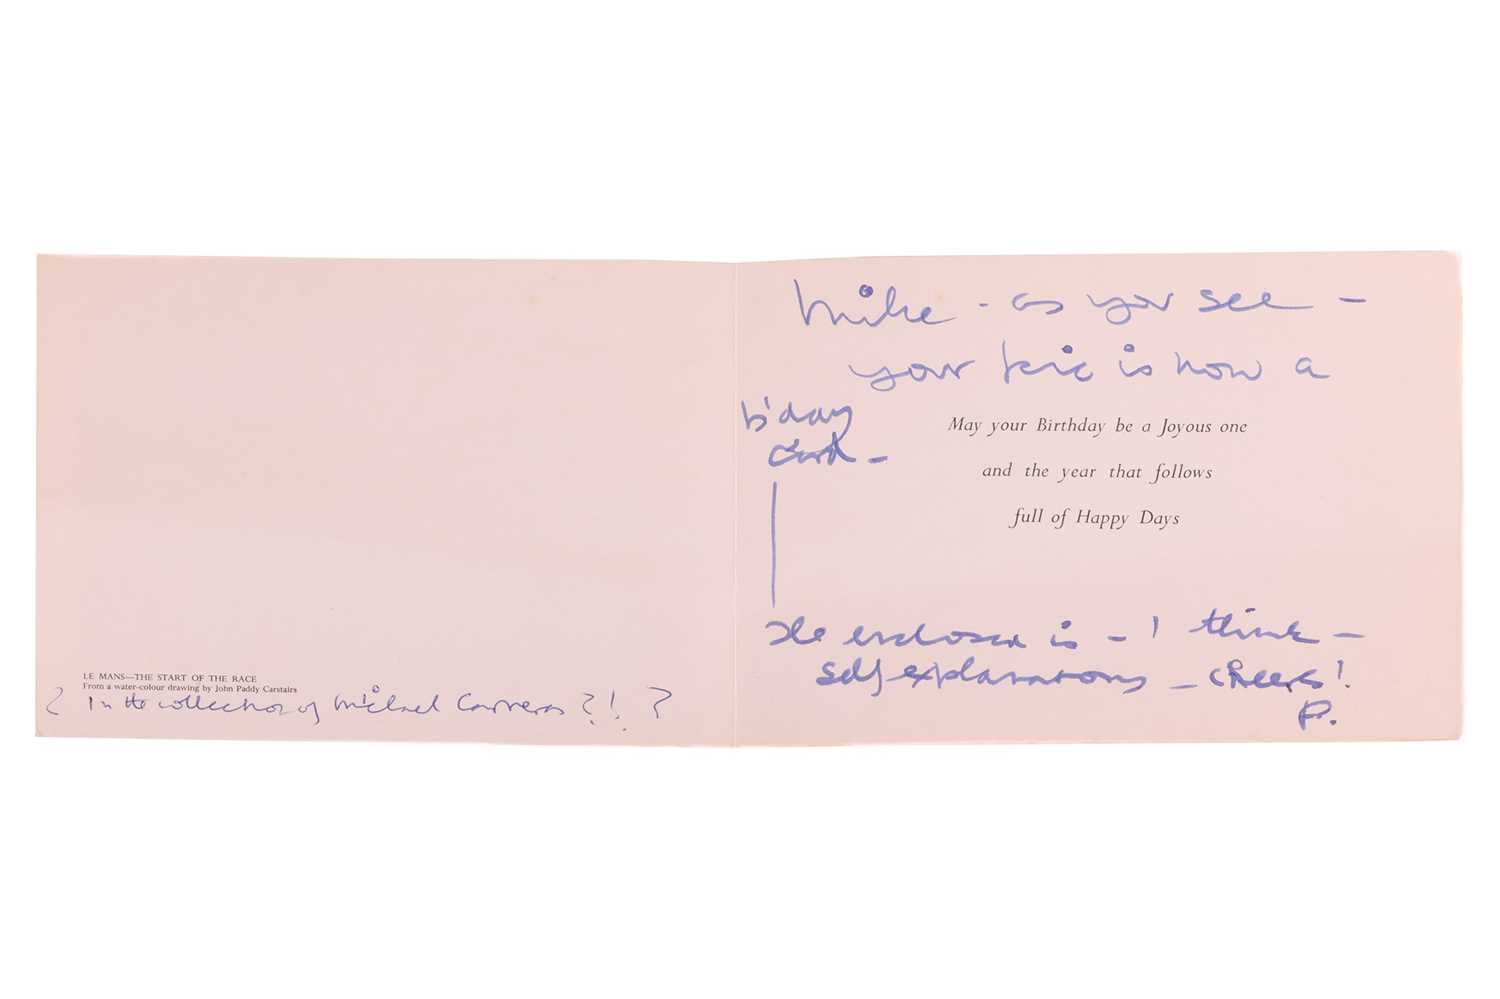 LE MANS—THE START OF THE RACE
From a water-colour drawing by John Paddy Carstairs
? In the collection of Michael Carreras ?! ?
Mike - as you see -
your pic is now a
b'day
card -
May your Birthday be a Joyous one
and the year that follows
full of Happy Days
The enclosed is - I think -
self explanatory - cheers!
P.